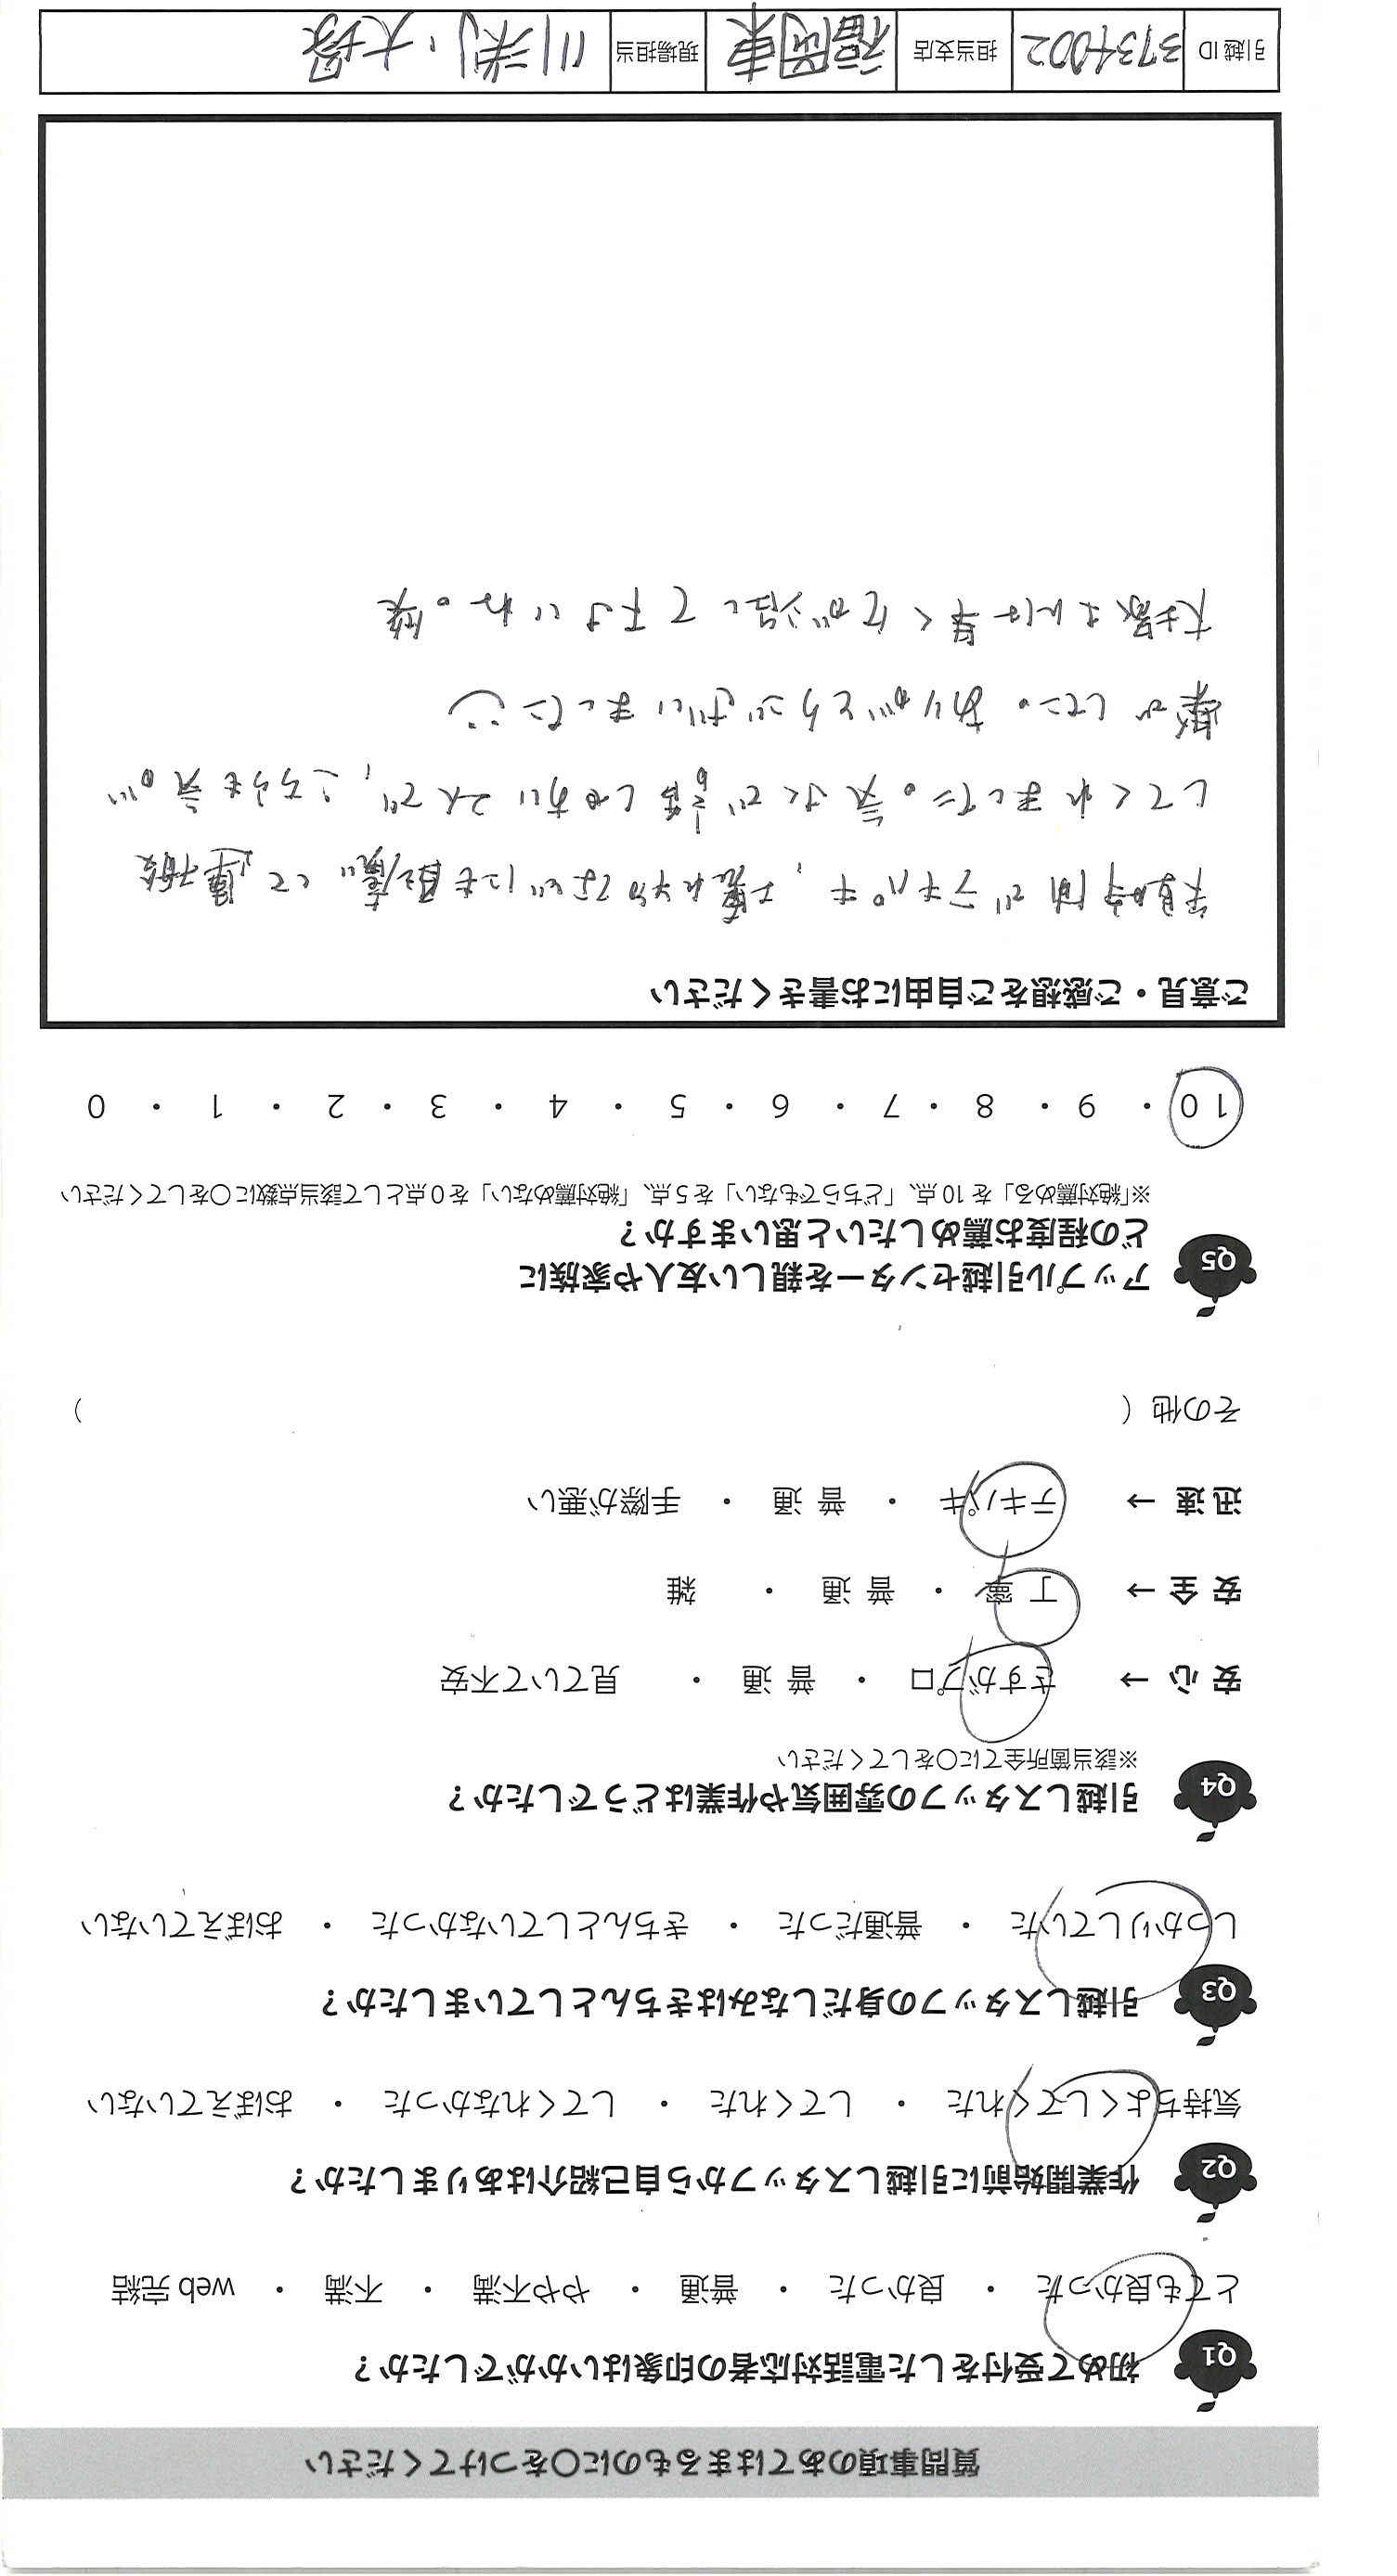 質問事項のあてはまるものに○をつけてください
Q1 初めて受付をした電話対応者の印象はいかがでしたか？
とても良かった ・ 良かった ・ 普通 ・ やや不満 ・ 不満 ・ web 完結
Q2 作業開始前に引越しスタッフから自己紹介はありましたか？
気持ちよくしてくれた ・ してくれた ・ してくれなかった ・ おぼえていない
Q3 引越しスタッフの身だしなみはきちんとしていましたか？
しっかりしていた ・ 普通だった ・ きちんとしていなかった ・ おぼえていない
Q4 引越しスタッフの雰囲気や作業はどうでしたか？
※該当箇所全てに○をしてください
安 心 → さすがプロ ・ 普 通 ・ 見ていて不安
安 全 → 丁 寧 ・ 普 通 ・ 雑
迅 速 → テキパキ ・ 普 通 ・ 手際が悪い
その他（ ）
Q5 アップル引越センターを親しい友人や家族に
どの程度お薦めしたいと思いますか？
※「絶対薦める」を 10 点、「どちらでもない」を 5 点、「絶対薦めない」を 0 点として該当点数に○をしてください
10 ・ 9 ・ 8 ・ 7 ・ 6 ・ 5 ・ 4 ・ 3 ・ 2 ・ 1 ・ 0
ご意見・ご感想をご自由にお書きください
短時間でテキパキ、壊れ物などにも配慮して運搬
してくれました。気さくで話しやすい2人で、こちらも気が
楽でした。ありがとうございました
大塚さんは早く を治して下さいね。笑
引越 ID 3734002 担当支店 福岡東 現場担当 川渕・大塚